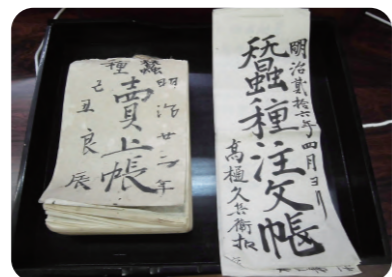 蠶種
明治廿二年
賣上帳
己丑良辰
明治貳拾六年四月ヨリ
蠶種注文帳
久兵衛扣